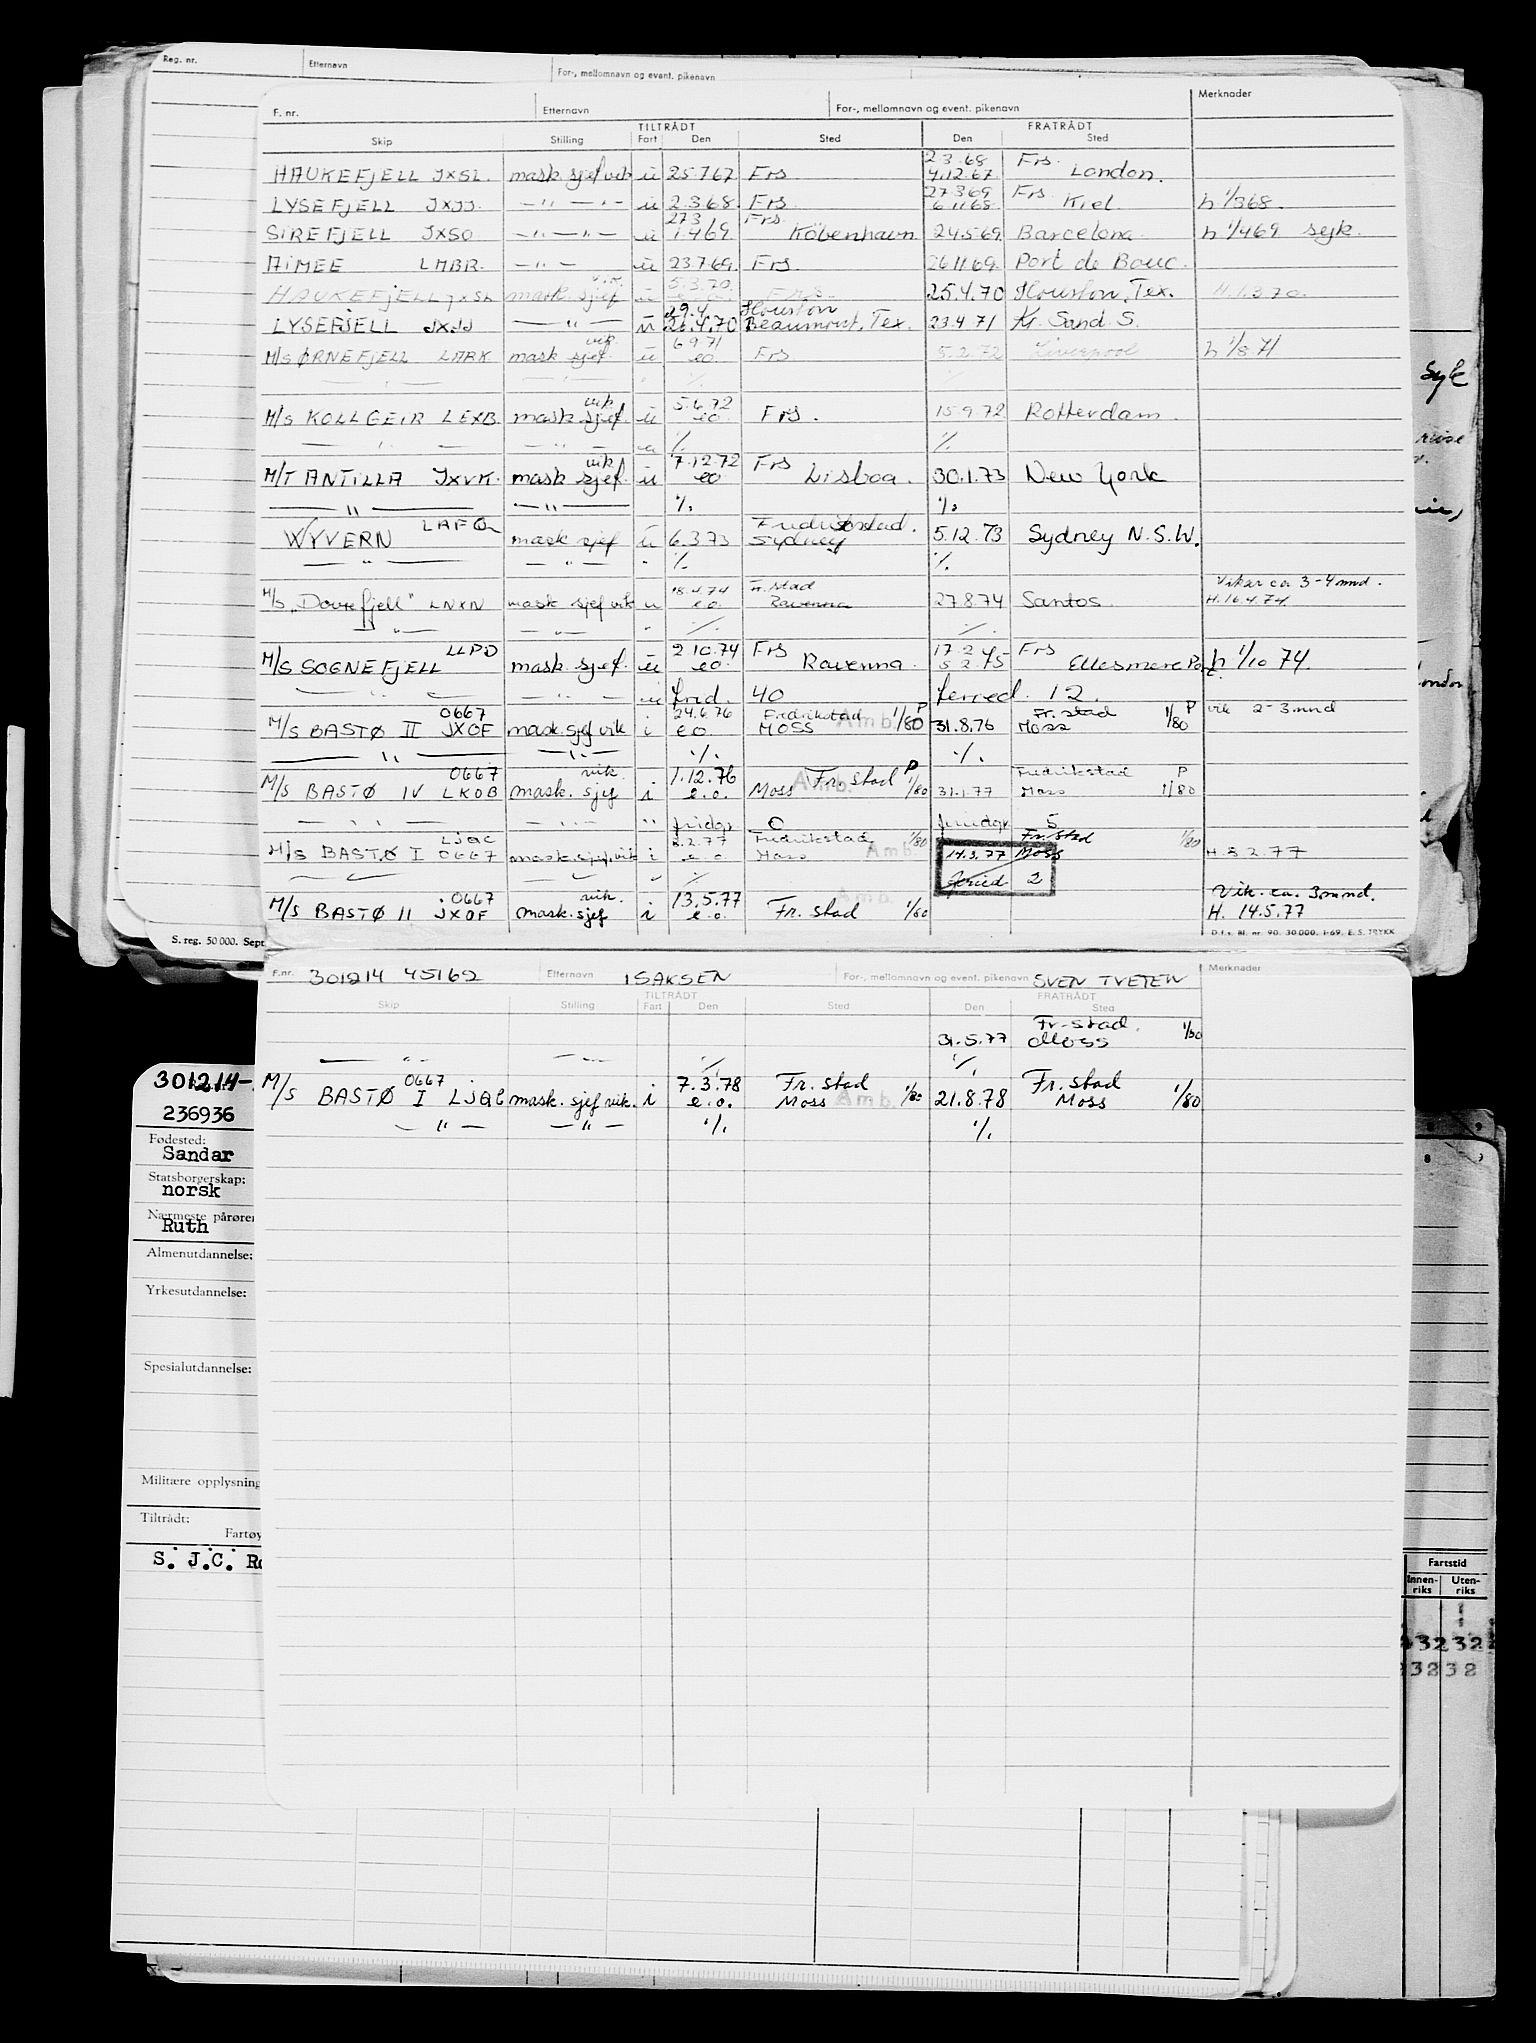 Reg. nr. Etternavn For-, mellomnavn og event. pikenavn
F. nr. Etternavn For-, mellomnavn og event. pikenavn Merknader
TILTRÅDT FRATRÅDT
Skip Stilling Fart Den Sted Den Sted
2.3.68 Frs.
HAUKEFJELL JXSL. mask. sjef vik ü 25.7.67 Frs 4.12.67 London.
27.3.69 Frs.
LYSEFJELL JXJJ. —„—„— ü 2.3.68 Frs. 6.11.68 Kiel h 1/3 68.
27.3 Frs.
SIREFJELL JXSO —„—„— ü 1.4.69 Köbenhavn 24.5.69 Barcelona h 1/4 69 syk.
AIMEE LMBR. —„— ü 23.7.69. Frs. 26.11.69. Port de Bouc.
vik. 5.3.70.
HAUKEFJELL JXSL mask. sjef ü Frs. 25.4.70 Houston, Tex. H.1.3.70.
29.4. Houston
LYSEFJELL JXJJ —„— ü 26.4.70 Beaumont, Tex. 23.4.71 Kr. Sand. S.
vik. 6.9.71
M/S ØRNEFJELL LMRK mask sjef. ü eo. Frs 5.2.72 Liverpool h 1/8.71
— „ — — „ — „ ·/. ·/.
vik 5.6.72
M/S KOLLGEIR LEXB. mask sjef. ü eo. Frs. 15.9.72 Rotterdam.
— „ — — „ — ·/. ·/.
vik 7.12.72 Frs
M/T ANTILLA JXVK. mask sjef. ü eo Lisboa. 30.1.73 New York
— „ — — „ — ·/. ·/.
LAFQ Fredrikstad.
WYVERN mask sjef ü 6.3.73 Sydney 5.12.73 Sydney N.S.W.
— „ — — „ — „ ·/. ·/.
18.4.74 Fr.stad Vikar ca 3-4 mnd.
M/S „Dovrefjell" LNXN mask sjef vik u e.o. Ravenna 27.8.74 Santos. H.16.4.74
— „ — — „ — „ ·/. ·/.
LLPD 2.10.74 Frs 17.2.75 Frs
M/S SOGNEFJELL mask. sjef. ü eo. Ravenna. 5.2.75 Ellesmere Port. h 1/10 74.
— „ — — „ — ü frid. 40 feried. 12.
0667 24.6.76 Fredrikstad P Fr. stad P vik 2-3 mnd
M/S BASTØ II JXOF mask. sjef vik i e o. MOSS Amb. 1/80 31.8.76 Moss 1/80
— „ — — „ — ·/. ·/.
0667 vik. 1.12.76 Fr. stad P Fredrikstad P
M/S BASTØ IV LKOB mask. sjef i e.o. Moss Amb. 1/80 31.1.77 Moss 1/80
— „ — — „ — „ fridgr 0 friedgr 5
LJQC 2.77 Fredrikstad 1/80 Fr. stad 1/80
M/S BASTØ I 0667 mask. sjef. vik i e.o Moss Amb. 14.3.77 Moss H.5.2.77
— „ — — „ — „ ·/. feried 2
0667 vik. 13.5.77 Amb. Vik. ca. 3 mnd.
M/S BASTØ II JXOF mask. sjef i e.o. Fr. stad 1/80 H. 14.5.77
S. reg. 50 000. Sept D.f.s. Bl. nr. 90. 30.000. 1-69. E. S. TRYKK
F.nr. 301214 45162 Etternavn ISAKSEN For-, mellomnavn og event. pikenavn SVEN TVETEN Merknader
TILTRÅDT FRATRÅDT
Skip Stilling Fart Den Sted Den Sted
Fr. stad.
31.5.77 Moss 1/80
— „ — — „ — ·/. ·/.
0667 7.3.78 Fr. stad Fr. stad
M/S BASTØ I LJQC mask. sjef vik. i e.o. Moss Amb. 1/80 21.8.78 Moss 1/80
— „ — — „ — ·/. ·/.
301214-
236936
Fødested:
Sandar
Statsborgerskap:
norsk
Nærmeste pårøren
Ruth
Almenutdannelse:
Yrkesutdannelse:
Spesialutdannelse:
Militære opplysning
Tiltrådt:
Fartøy
S. J.C. Ro
syk
reise
Fartstid
Innen-riks Uten-riks